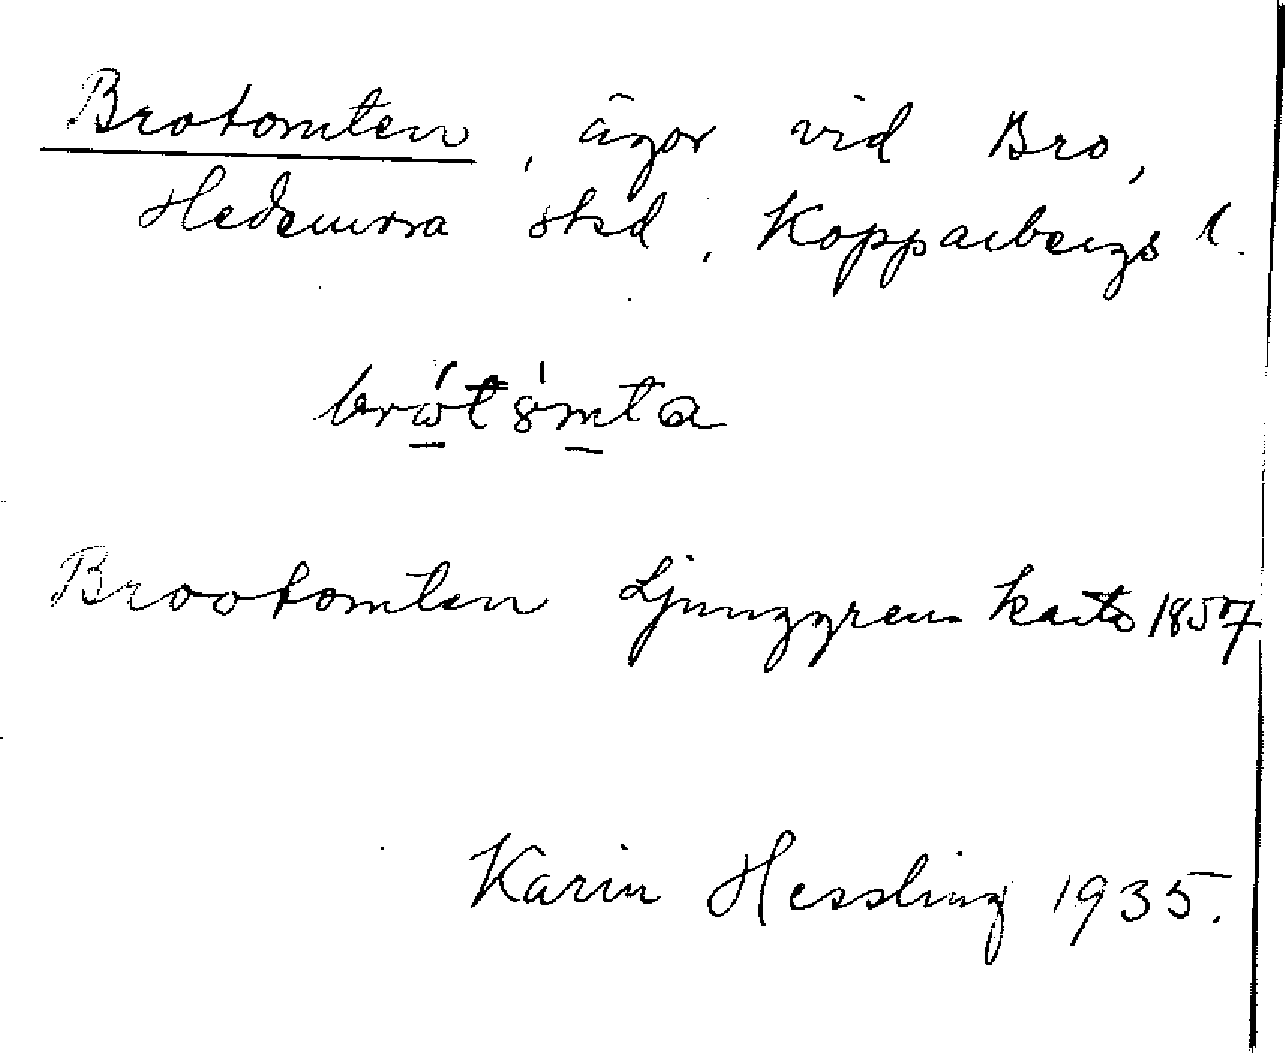 Brotomten, ägor vid Bro,
Hedemora stad, Kopparbergs l.
Brootomten Ljunggrens karta 1857
Karin Hessling 1935.